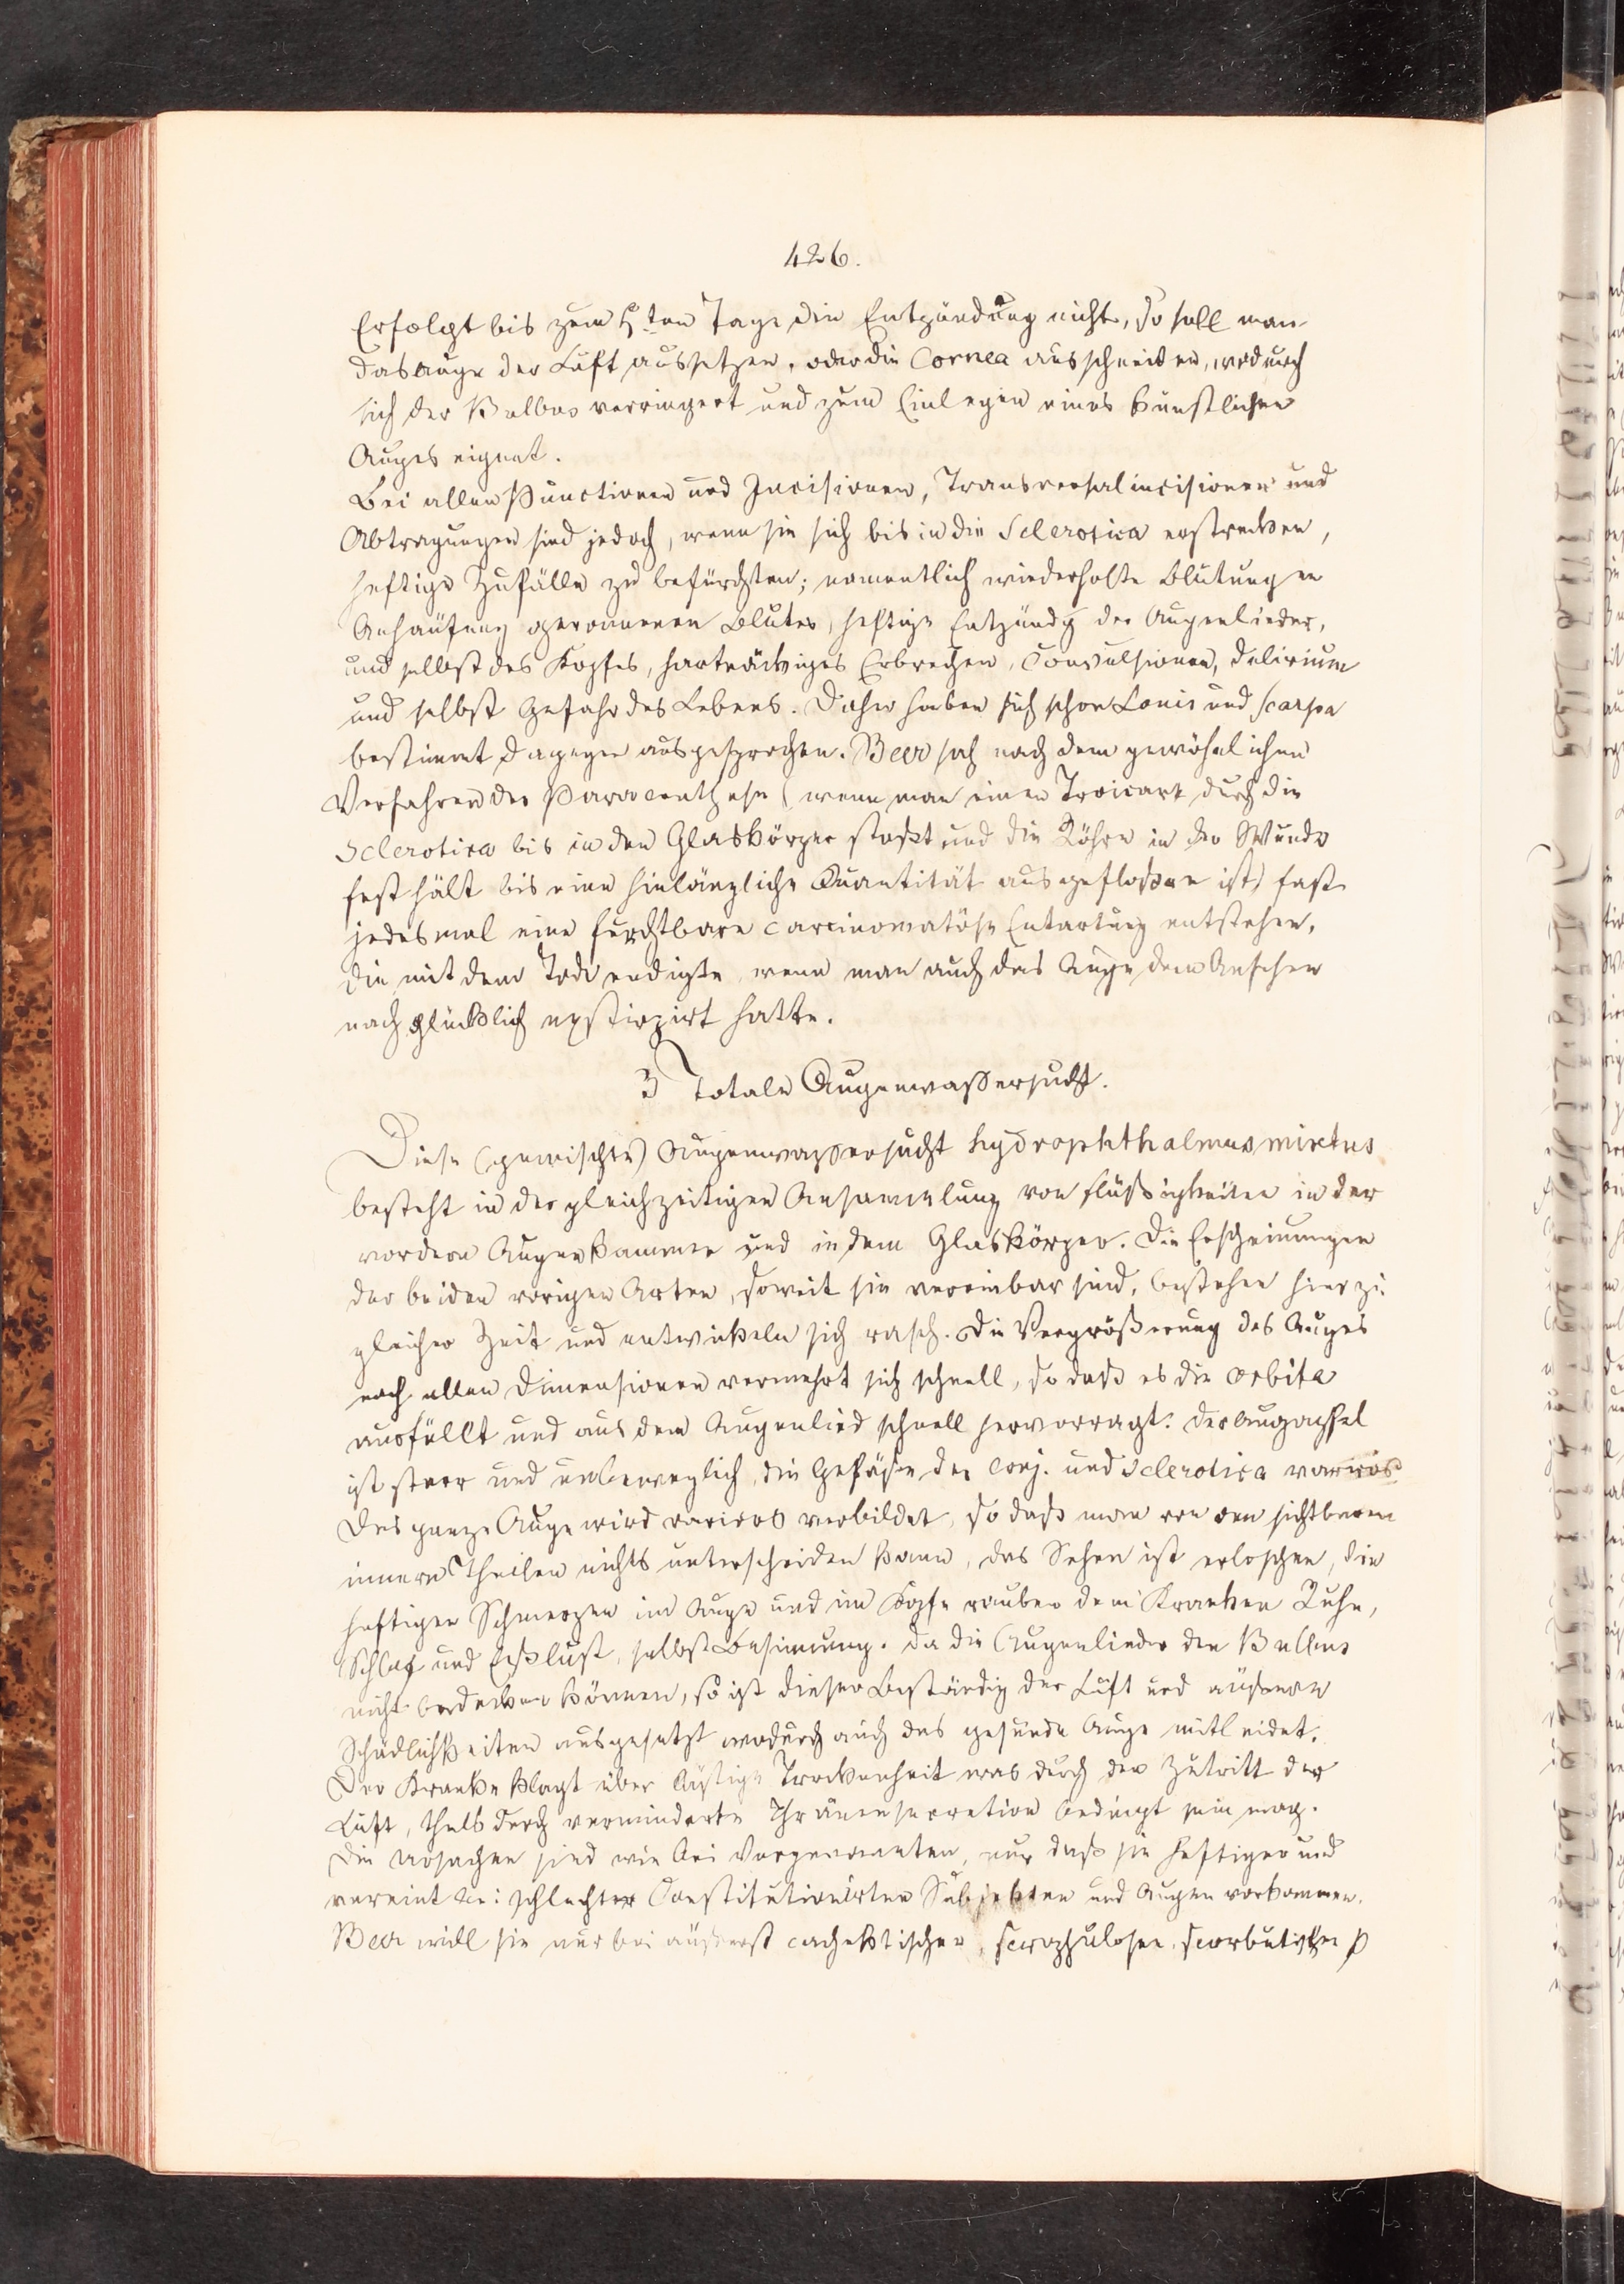 426.
Erfolgt bis zum 5ten Tage die Entzündung nicht, so soll man
das Auge der Luft aussetzen, oder die Cornea ausschneiden, wodurch
sich der Bulbus verringert und zum Einlegen eines künstlichen
Auges eignet.
Bei allen Punctionen und Incisionen, Transversalincisionen und
Abtragungen sind jedoch, wenn sie sich bis in die Sclerotica erstrecken,
heftige Zufälle zu befürchten; namentlich wiederholte Blutungen
Anhäufung geronnenen Blutes, heftige Entzündg der Augenlieder,
und selbst des Kopfes, hartnäckiges Erbrechen, Convulsionen, Delirium
und selbst Gefahr des Lebens. Daher haben sich schon Louis und Scarpa
bestimmt dagegen ausgesprochen. Beer sah nach dem gewöhnlichen
Verfahren der Paracenthese (wenn man einen Troicart durch die
Sclerotica bis in den Glaskörper stößt und die Röhre in der Wunde
fest hält bis eine hinlängliche Quantität ausgeflossen ist) fast
jedesmal eine furchtbare carcinomatöse Entartung entstehen,
die mit dem Tode endigte, wenn man auch das Auge dem Ansehen
nach glücklich exstirpirt hatte.
3 Totale Augenwassersucht.
Diese (gemischte) Augenwassersucht hydrophthalmus mixtus
besteht in der gleichzeitigen Ansammlung von Flüßigkeiten in der
vordern Augenkammer und in dem Glaskörper. Die Erscheinungen
der beiden vorigen Arten, soweit sie vereinbar sind, bestehen hier zu
gleicher Zeit und entwickeln sich rasch. Die Vergrößerung des Auges
nach allen Dimensionen vermehrt sich schnell, so daß es die Orbita
ausfüllt und aus dem Augenlied schnell hervorragt. Der Augapfel
ist starr und unbeweglich, die Gefäße der Conj. und Sclerotica varicös
Das ganze Auge wird varicos verbildet, so daß man von den sichtbaren
innern Theilen nichts unterscheiden kann, das Sehen ist erloschen, die
heftigen Schmerzen im Auge und im Kopfe rauben dem Kranken Ruhe,
Schlaf und Eßlust, selbst Besinnung. Da die Augenlieder den Bulbus
nicht bedecken können, so ist dieser beständig der Luft und äußeren
Schädlichkeiten ausgesetzt wodurch auch das gesunde Auge mitleidet.
Der Kranke klagt über lästige Trockenheit was durch den Zutritt der
Luft, theils durch verminderte Thränensecretion bedingt sein mag.
Die Ursachen sind wie bei Vorgenannten, nur daß sie heftiger und
vereint bei schlechter Constitutionirten Subjekten und Augen vorkommen.
Beer will sie nur bei äußerst cachektischen, scrophulosen, scorbutischen